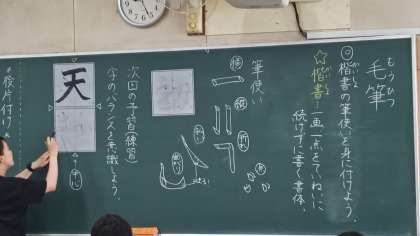 もうひつ
毛筆
◎楷書の筆使いを身に付けよう。
☆楷書…一画一点をていねいに
続けずに書く書体。
筆使い
横
縦
折れ
点
はらい
曲がり
次回の予習(練習)
字のバランスを意識しよう。
天
中心
後片付け